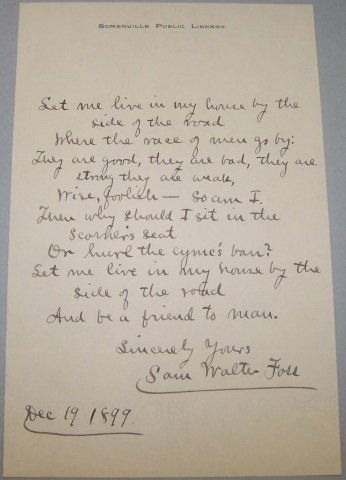 SOMERVILLE PUBLIC LIBRARY.
Let me live in my house by the
side of the road
Where the race of men go by:
They are good, they are bad, they are
strong they are weak,
Wise, foolish — so am I.
Then why should I sit in the
scorner's seat
Or hurl the cynic's ban?
Let me live in my house by the
side of the road
And be a friend to man.
Sincerely Yours
Sam Walter Foss
Dec 19 1899.